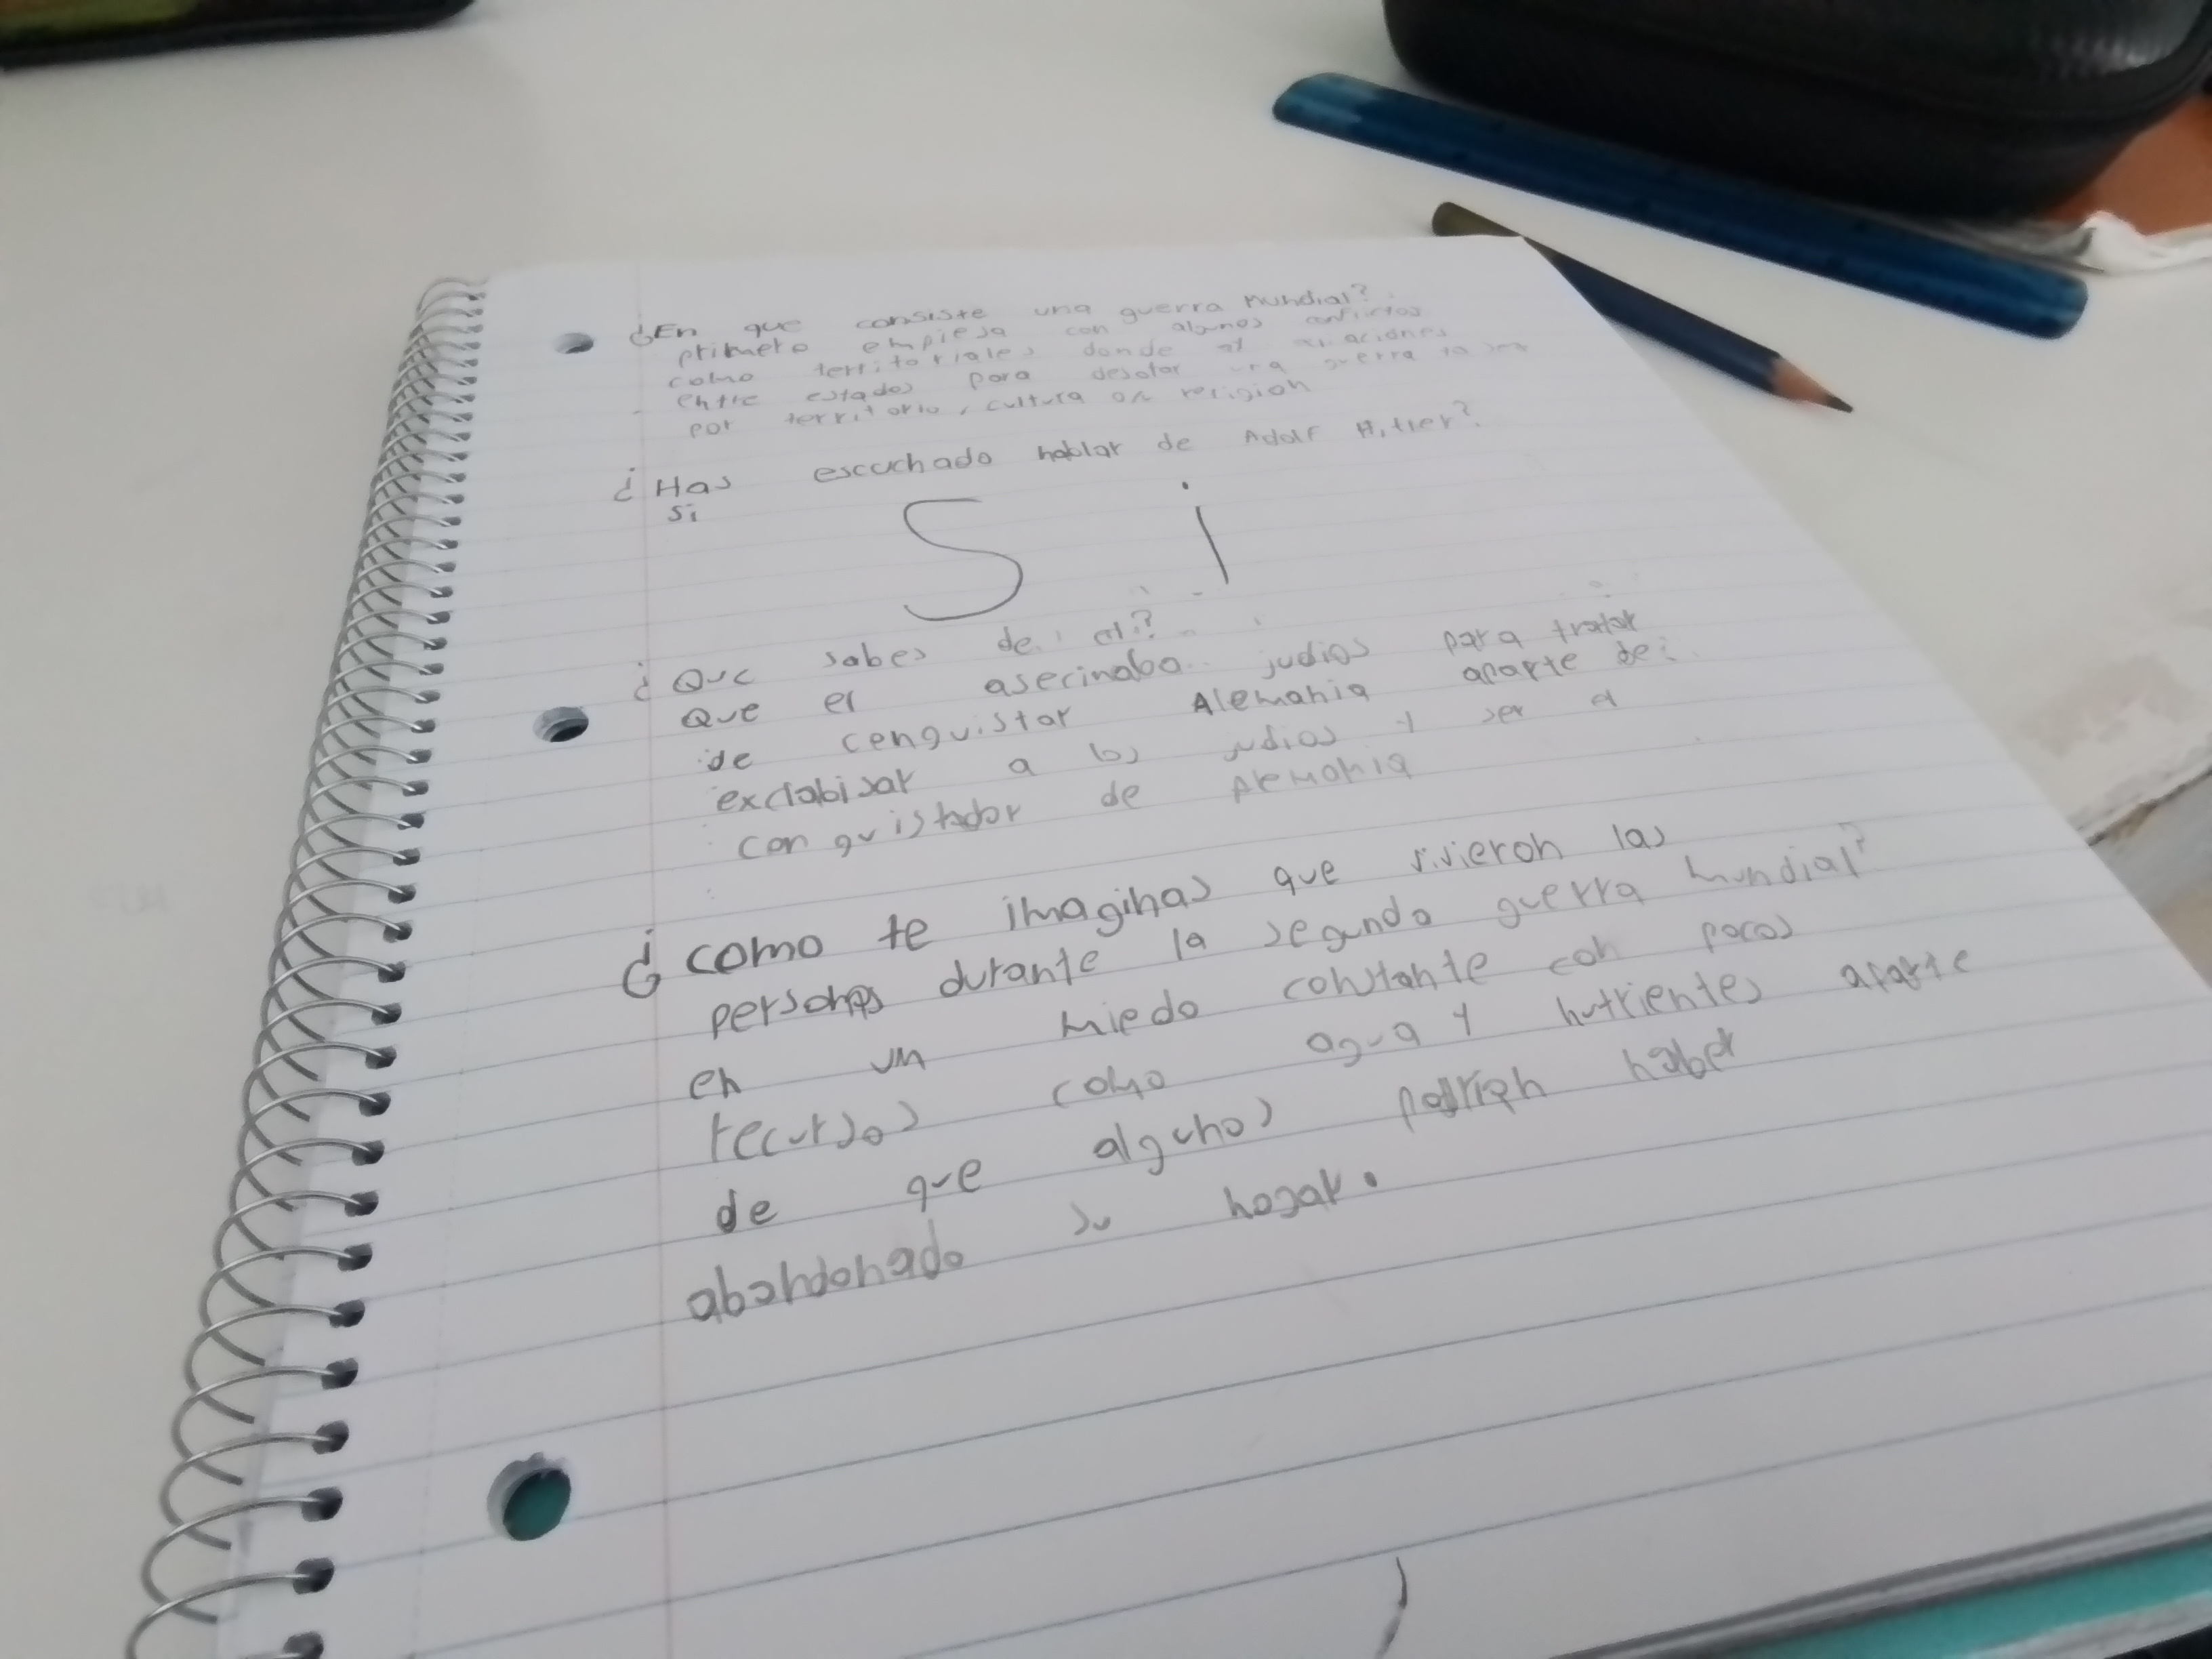 ¿En que consiste una guerra Mundial?
primero empiesa con algunos conflictos
como territoriales donde
entre estados para desatar una guerra ya sea
por territorio, cultura religion
¿Has escuchado hablar de Adolf Hitler?
Si
S i
¿Que sabes de el?
Que el asecinaba judios para tratar
de cenquistar Alemania aparte de
exclabisar a los judios y ser el
conquistador de Alemania
¿como te imaginas que vivieron las
personas durante la segunda guerra mundial?
en un miedo constante con pocos
recursos como agua y nutrientes aparte
de que algunos podrian haber
abandonado su hogar.